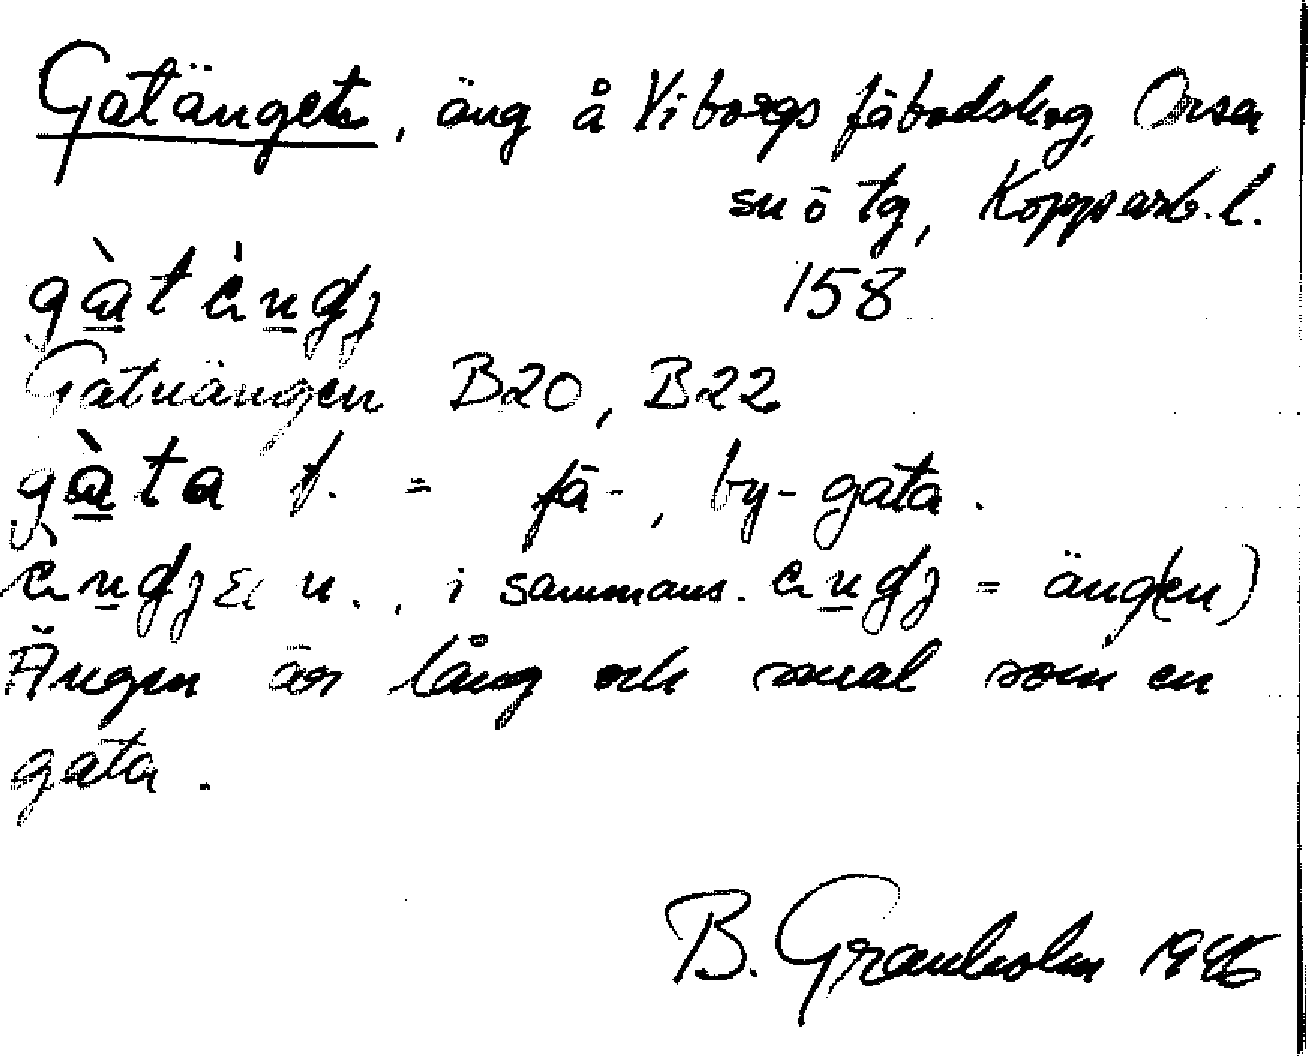 Gatänget, äng å Viborgs fäbodskog, Orsa
sn ö tg, Kopparb. l.
gàtèngj 158
Gatuängen B20, B22
gàta f. = fä-, by-gata.
èngjä n., i sammans. engj = äng(en)
Ängen är lång och smal som en
gata.
B. Granholm 1946